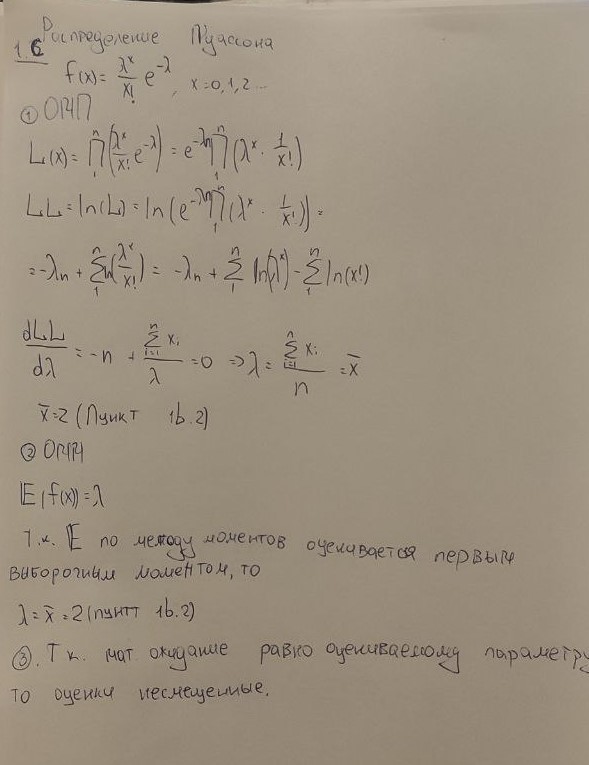 Распределение Пуассона
1.6
f(x)= λ^x/x! e^{-λ}, x=0,1,2...
① ОМП
L(x)= ∏_1^n (λ^x/x! e^{-λ}) = e^{-λn} ∏_1^n (λ^x · 1/x!)
LL=ln(L)=ln(e^{-λn} ∏_1^n (λ^x · 1/x!)) =
= -λn + ∑_1^n ln(λ^x/x!) = -λn + ∑_1^n ln(λ^x) - ∑_1^n ln(x!)
dLL/dλ = -n + ∑_{i=1}^n x_i / λ = 0 => λ = ∑_{i=1}^n x_i / n = x̄
x̄=2 (Пункт 1b.2)
② ОММ
E(f(x))=λ
Т.к. E по методу моментов оценивается первым
выборочным моментом, то
λ = x̄ = 2 (пунтт 1b.2)
③. Т к. мат. ожидание равно оцениваемому параметру
то оценки несмещенные.